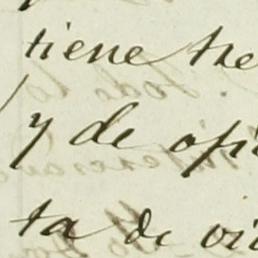 tiene tre
y de ofi
ta de vi